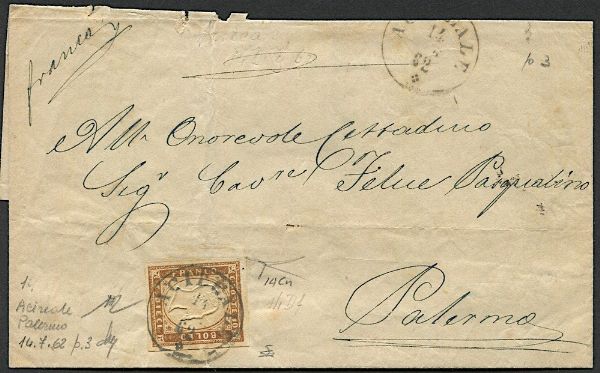 franca
ACIREALE
14
62
p 3
All' Onorevole Cittadino
Sigr Cavre Felice Pasqualino
Palermo
14Cn
1.
Acireale
Palermo
14.7.62 p.3
BOLLO